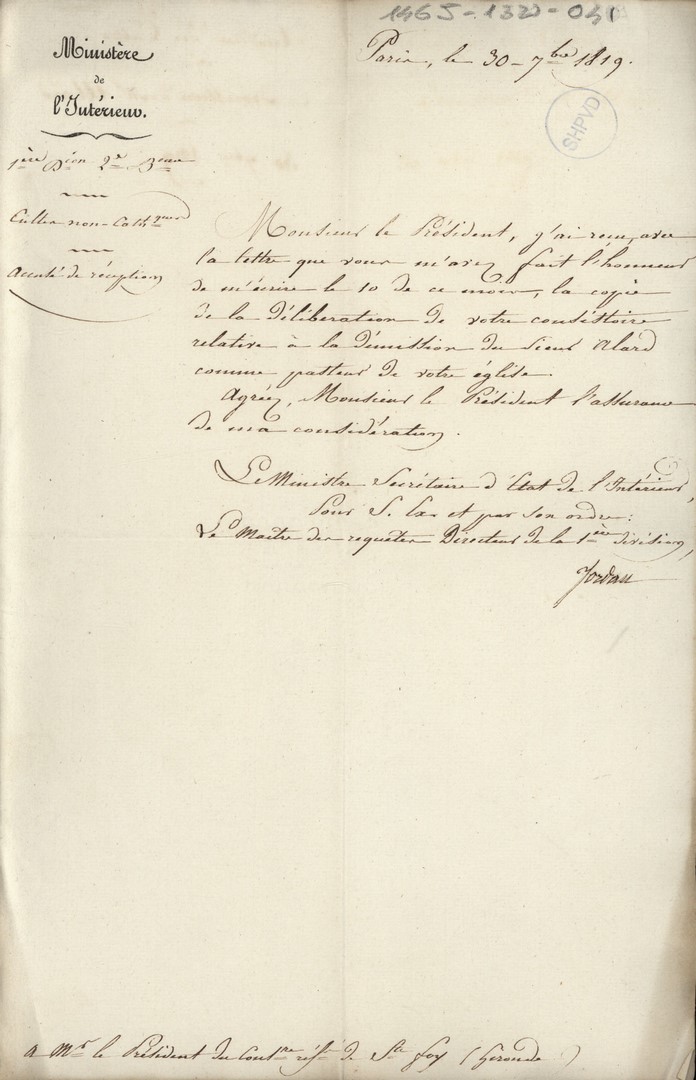 1465-1320-041
Ministère
de
l'Intérieur.
Paris, le 30 - 7bre 1819.
SHPVD
1ère Dion 2e Beau
Cultes non-Cathques
accusé de réception
Monsieur le Président, j'ai reçu, avec
la lettre que vous m'avez fait l'honneur
de m'écrire le 10 de ce mois, la copie
de la délibération de votre consistoire
relative à la démission du Sieur Alard
comme pasteur de votre église.
Agréez, Monsieur le Président l'assurance
de ma considération.
Le Ministre Secrétaire d'Etat de l'Intérieur,
Pour S. Ex et par son ordre:
Le Maître des requêtes Directeur de la 1ère division,
Jordan
A Mr le Président du Constre réfé de Ste foy (Gironde)